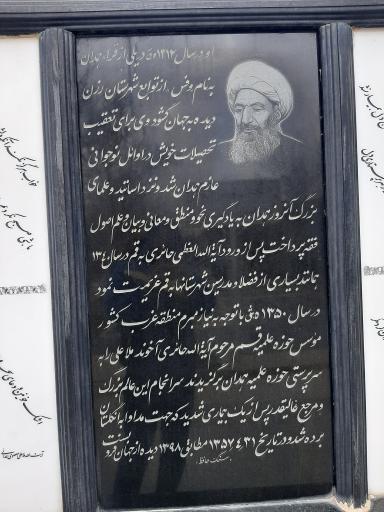 او در سال ۱۳۱۲ه‍ ق در یکی از قراء همدان
به نام وفس از توابع شهرستان رزن
دیده به جهان گشود وی برای تعقیب
تحصیلات خویش در اوائل نوجوانی
عازم همدان شد و نزد اساتید و علمای
بزرگ آنروز همدان به یادگیری نحو و منطق و معانی و بیان و علم اصول
فقه پرداخت پس از ورود آیة الله العظمی حائری به قم در سال ۱۳۴۰
همانند بسیاری از فضلا و مدرسین شهرستانها به قم عزیمت نمود
در سال ۱۳۵۰ ه‍ ق با توجه به نیاز مبرم منطقه غرب کشور
موسس حوزه علمیه قم مرحوم آیة الله حائری آخوند ملا علی را به
سرپرستی حوزه علمیه همدان برگزیدند سرانجام این عالم بزرگ
و مرجع عالیقدر پس از یک بیماری شدید که جهت مداوا به انگلستان
برده شد و در تاریخ ۱۳۵۷/۴/۳۱ مطابق ۱۳۹۸ دیده از جهان فروبست
سنگ حافظ